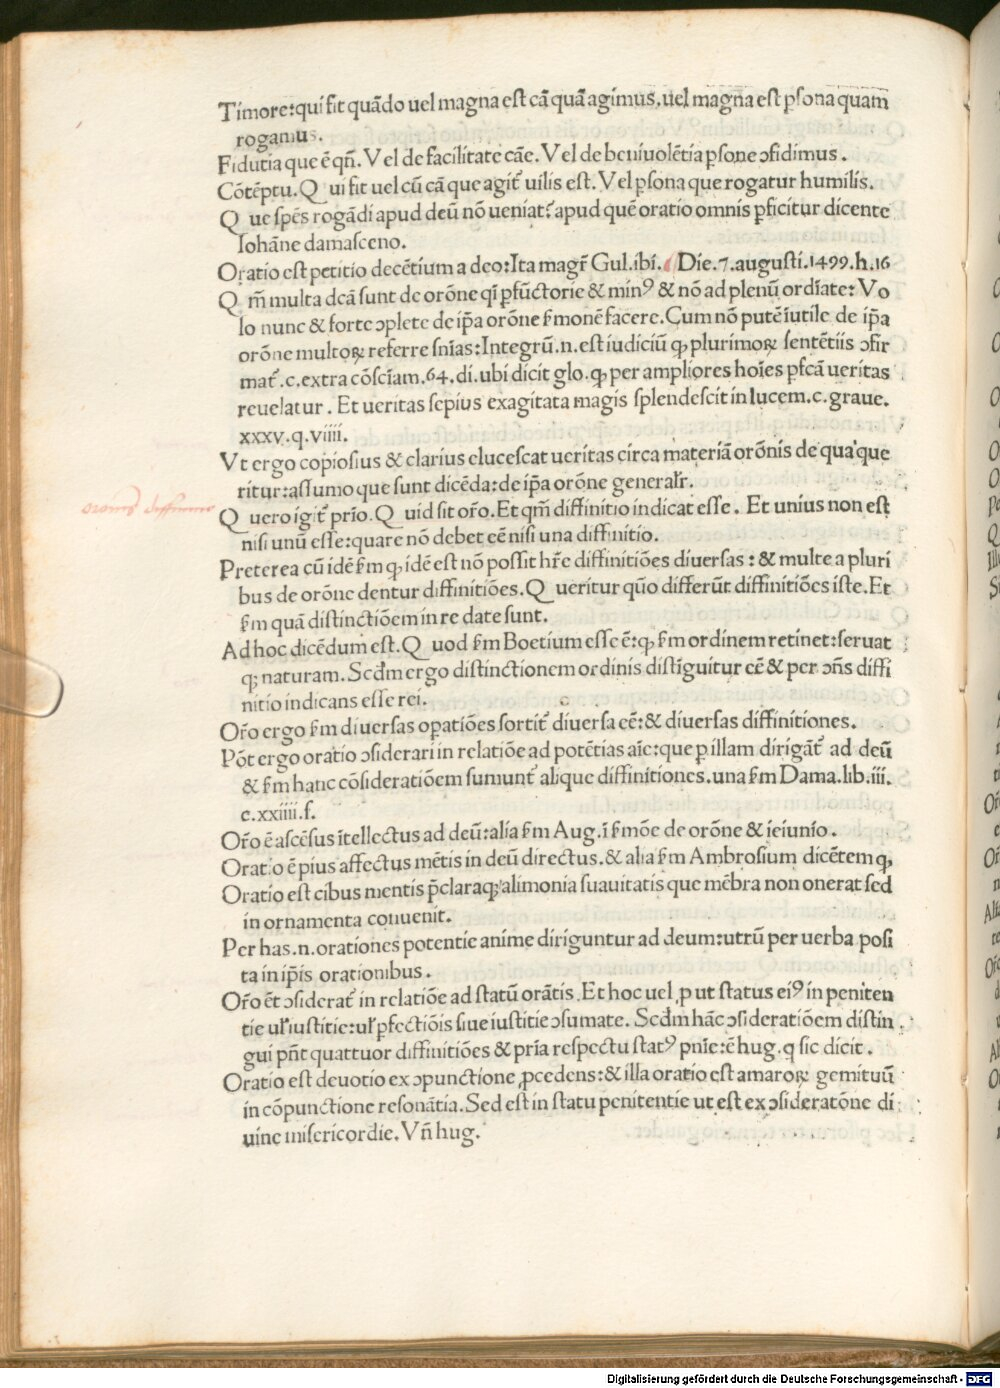 Timore:qui fit quãdo uel magna est cã quã agimus.uel magna est p̱sona quam
rogamus.
Fidutia que ẽ qñ. Vel de facilitate cãe. Vel de beniuolẽtia p̱sone ɔfidimus.
Cõtẽptu. Qui fit uel cũ cã que agit̃ uilis est. Vel p̱sona que rogatur humilis.
Que spẽs rogãdi apud deũ nõ ueniat:apud quẽ oratio omnis p̱ficitur dicente
Iohãne damasceno.
Oratio est petitio decẽtium a deo:Ita magr̃ Gul.ibi. Die.7.augusti.1499.h.16
Qm̃ multa dcã sunt de orõne qĩ p̱fũctorie & minꝰ & nõ ad plenũ ordĩate: Vo
lo nunc & forte ɔplete de ip̃a orõne ẜmonẽ facere. Cum nõ putẽ ĩutile de ip̃a
orõne multoꝝ referre sñias:Integrũ.n.est iudiciũ ꝙ plurimoꝝ sentẽtiis ɔfir
mat̃.c.extra cõsciam.64.di.ubi dicit glo.ꝙ per ampliores hoĩes p̱fcã ueritas
reuelatur. Et ueritas sepius exagitata magis splendescit in lucem.c.graue.
xxxv.q.viiii.
Vt ergo copiosius & clarius elucescat ueritas circa materiã orõnis de qua que
ritur:assumo que sunt dicẽda:de ip̃a orõne generalr̃.
oronis diffinitio
Quero igit̃ prĩo. Quid sit or̃o. Et qm̃ diffinitio indicat esse. Et unius non est
nisi unũ esse:quare nõ debet eẽ nisi una diffinitio.
Preterea cũ idẽ ẜm ꝙ idẽ est nõ possit hr̃e diffinitiões diuersas: & multe a pluri
bus de orõne dentur diffinitiões. Queritur qũo differũt diffinitiões iste. Et
ẜm quã distinctiõem in re date sunt.
Ad hoc dicẽdum est. Quod ẜm Boetium esse ẽ:ꝙ ẜm ordinem retinet:seruat
qꝫ naturam. Scd̃m ergo distinctionem ordinis distĩguitur eẽ & per ɔñs diffi
nitio indicans esse rei.
Or̃o ergo ẜm diuersas op̱atiões sortit̃ diuersa eẽ:& diuersas diffinitiones.
Põt ergo oratio ɔsiderari in relatiõe ad potẽtias aĩe:que p̱ illam dirigãt̃ ad deũ
& ẜm hanc cõsideratiõem sumunt̃ alique diffinitiones.una ẜm Dama.lib.iii.
c.xxiiii.f.
Or̃o ẽ ascẽsus ĩtellectus ad deũ:alia ẜm Aug.ĩ ẜmõe de orõne & ieiunio.
Oratio ẽ pius affectus mẽtis in deũ directus.& alia ẜm Ambrosium dicẽtem ꝙ
Oratio est cibus mentis p̃claraqꝫ alimonia suauitatis que mẽbra non onerat sed
in ornamenta conuenit.
Per has.n.orationes potentie anime diriguntur ad deum:utrũ per uerba posi
ta in ip̃is orationibus.
Or̃o ẽt ɔsiderat̃ in relatiõe ad statũ orãtis. Et hoc uel ꝓut status eiꝰ in peniten
tie ul̃ iustitie:ul̃ p̱fectiõis siue iustitie ɔsumate. Scd̃m hãc ɔsideratiõem distin
gui pñt quattuor diffinitiões & prĩa respectu statꝰ pnĩe:ẽ hug.q sic dicit.
Oratio est deuotio ex ɔpunctione ꝓcedens:& illa oratio est amaroꝝ gemituũ
in cõpunctione resonãtia. Sed est in statu penitentie ut est ex ɔsideratõne di
uine misericordie. Vñ hug.
Digitalisierung gefördert durch die Deutsche Forschungsgemeinschaft - DFG